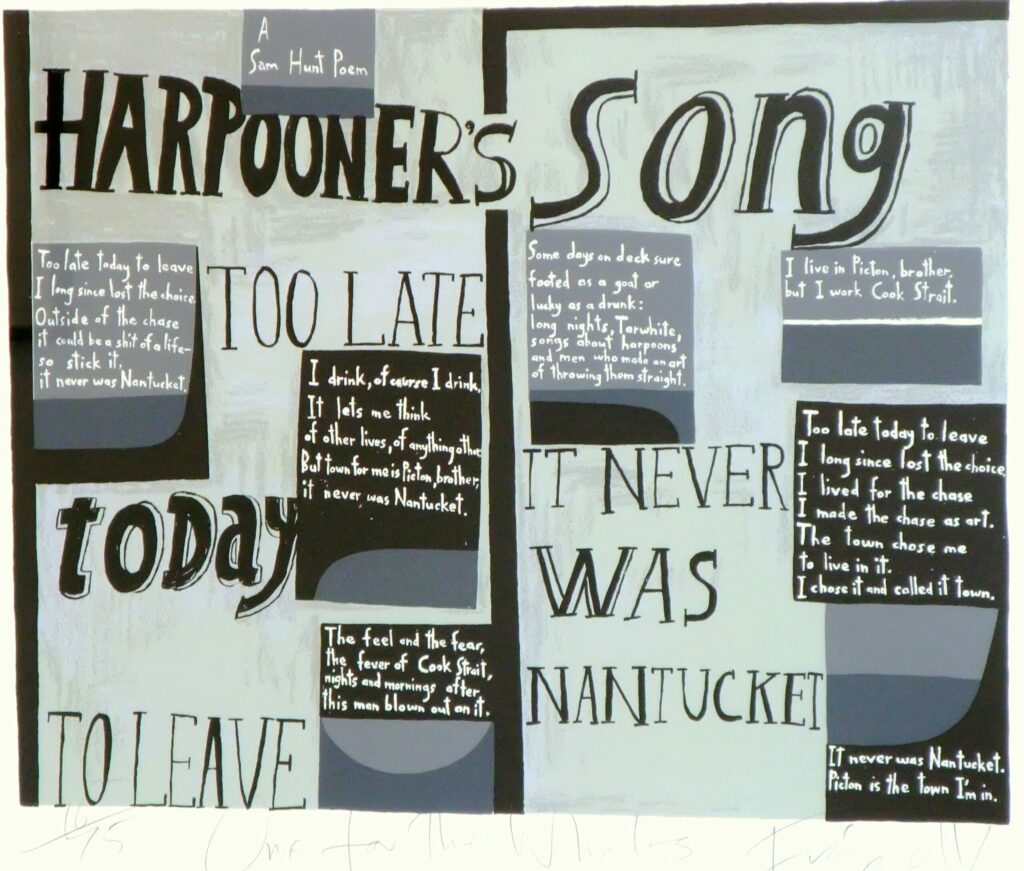 A
Sam Hunt Poem
HARPOONER'S SONG
Too late today to leave
I long since lost the choice.
Outside of the chase
it could be a shit of a life-
so stick it,
it never was Nantucket.
TOO LATE
I drink, of course I drink,
It lets me think
of other lives, of anything other
But town for me is Picton, brother,
it never was Nantucket.
today
The feel and the fear,
the fever of Cook Strait,
nights and mornings after,
this man blown out on it.
TO LEAVE
Some days on deck sure
footed as a goat or
lucky as a drunk:
long nights, Tarwhite,
songs about harpoons
and men who made an art
of throwing them straight.
I live in Picton, brother,
but I work Cook Strait.
IT NEVER
WAS
NANTUCKET
Too late today to leave
I long since lost the choice,
I lived for the chase
I made the chase as art.
The town chose me
to live in it.
I chose it and called it town.
It never was Nantucket.
Picton is the town I'm in.
One for the Whales